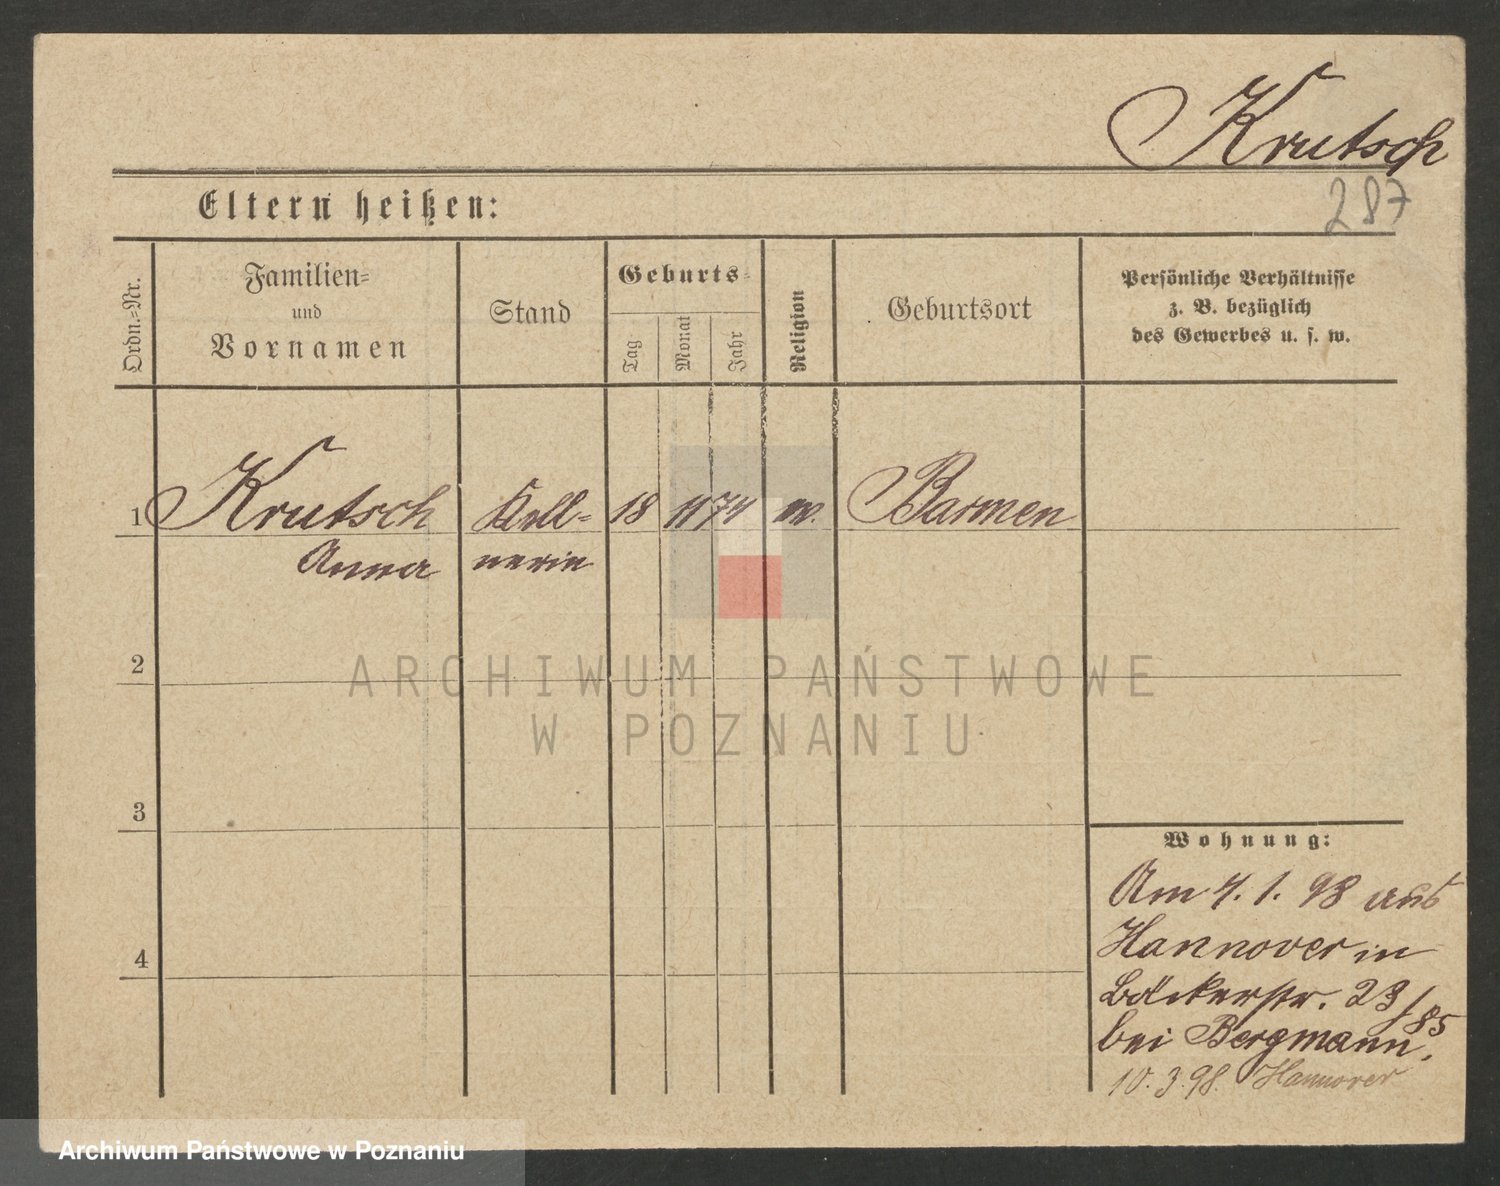 Krutsch
287
Eltern heißen:
Ordn.-Nr.
Familien-
und
Vornamen
Stand
Geburts-
Tag
Monat
Jahr
Religion
Geburtsort
Persönliche Verhältnisse
z. B. bezüglich
des Gewerbes u. s. w.
1 Krutsch Kell= 18 11 74 Barmen
Anna nerin
2
ARCHIWUM PAŃSTWOWE
W POZNANIU
3
Wohnung:
Am 4. 1. 98 aus
Hannover in
4
Bäckerstr. 23/85
bei Bergmann.
10.3.98. Hannover
Archiwum Państwowe w Poznaniu